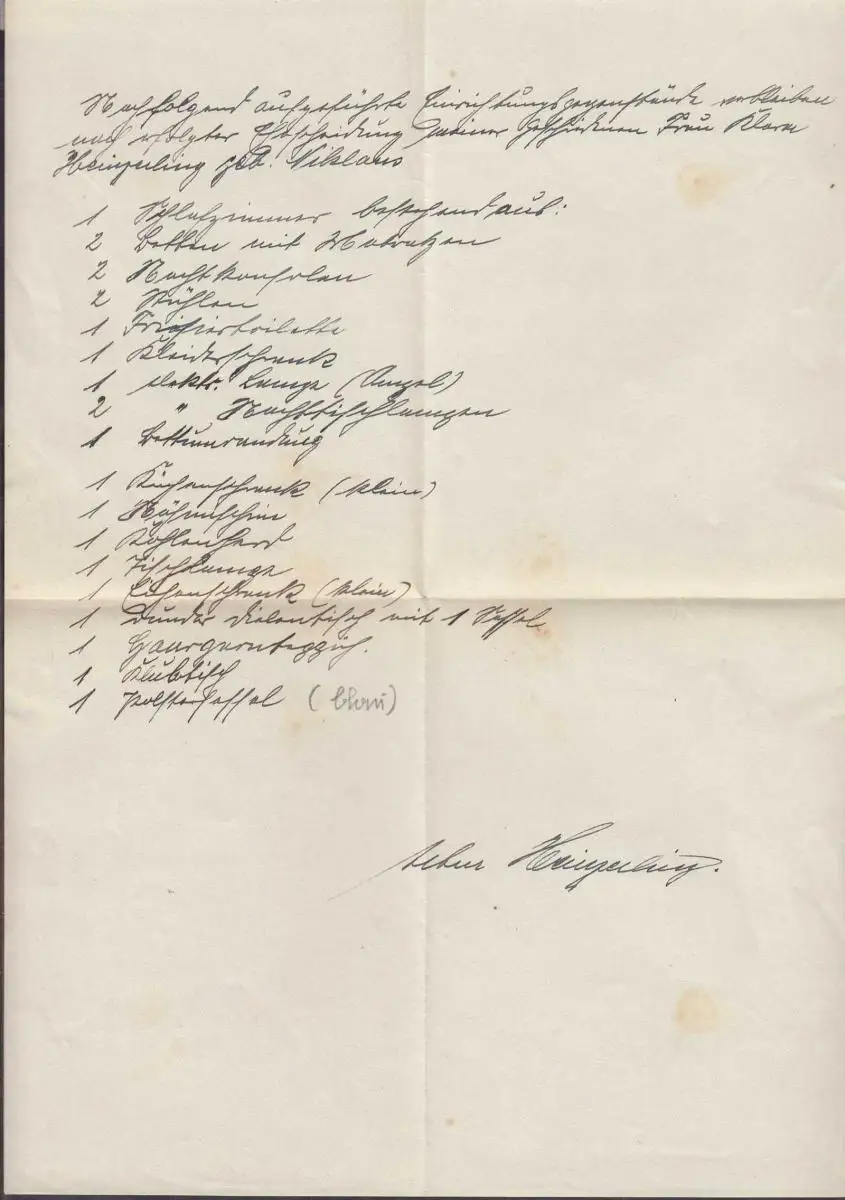 Nachfolgend aufgeführte Einrichtungsgegenstände verbleiben
nach erfolgter Ehescheidung meiner geschiedenen Frau Klara
geb. Niklaus
1 Schlafzimmer bestehend aus:
2 Betten mit Matratzen
2 Nachtkonsolen
2 Stühlen
1 Frisiertoilette
1 Kleiderschrank
1 elektr. Lampe (Ampel)
2 " Nachttischlampen
1 Bettumrandung
1 Küchenschrank (klein)
1 Nähmaschin
1 Kohlenherd
1 Tischlampe
1 Eichenschrank (klein)
1 runder Dielentisch mit 1 Sessel
1 Haargarnteppich.
1 Klubtisch
1 Polstersessel (blau)